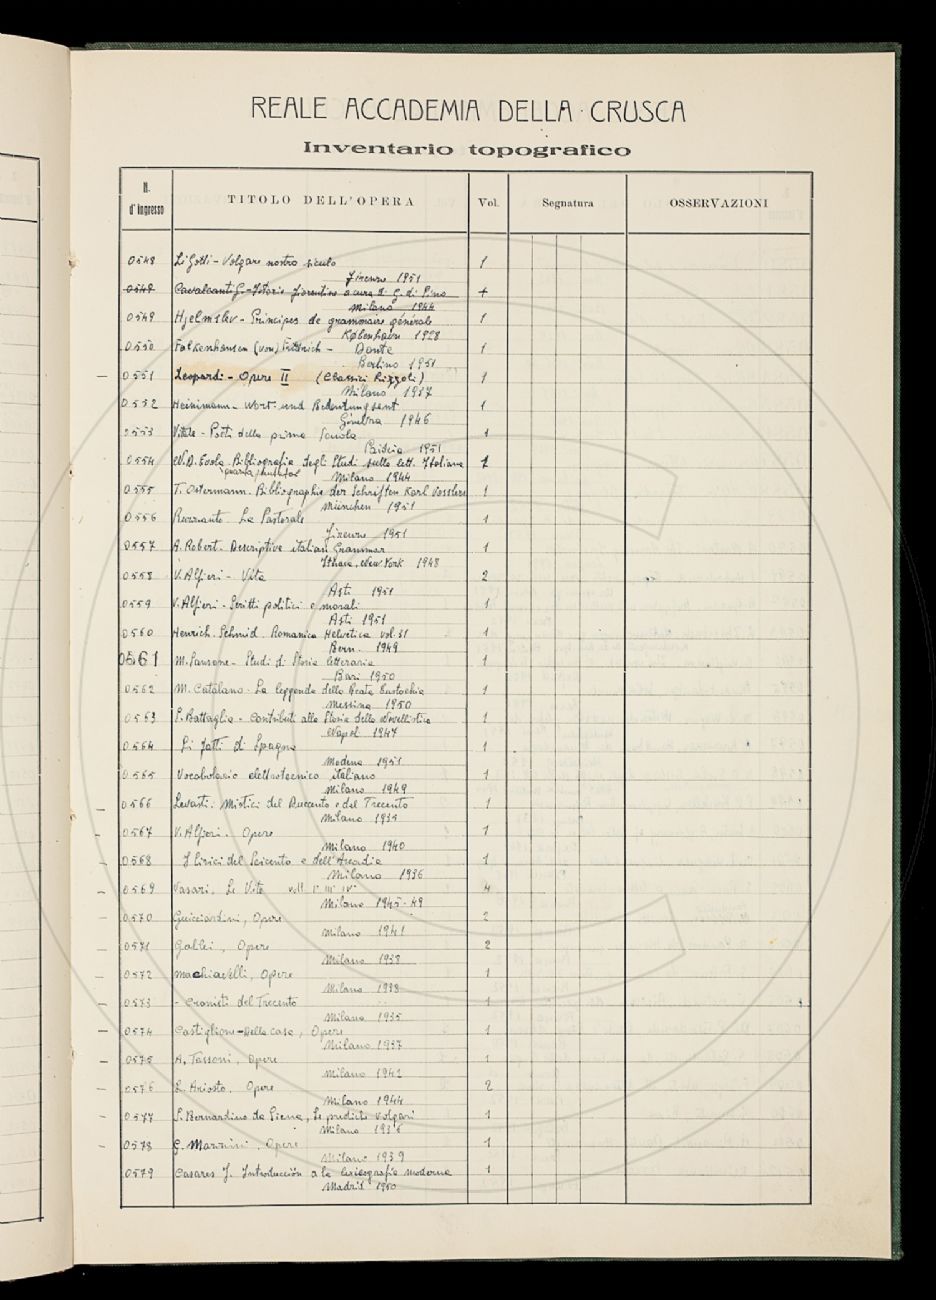 REALE ACCADEMIA DELLA CRUSCA
Inventario topografico
N. d'ingresso TITOLO DELL'OPERA Vol. Segnatura OSSERVAZIONI
0548 Li Gotti - Volgare nostro siculo 1
Firenze 1951
0549 Cavalcanti G. - Istorie fiorentine a cura di G. di Pino 1
Milano 1944
0549 Hjelmslev - Principes de grammaire générale 1
København 1928
0550 Falkenhausen (von) Friedrich - Dante 1
Berlino 1951
0551 Leopardi - Opere II (Classici Rizzoli) 1
Milano 1937
0552 Heinimann - Wort- und Bedeutung 1
Ginevra 1946
0553 Vitale - Poeti della prima Scuola 1
1951
0554 Evola Bibliografia degli Studi sulla lett. Italiana 1
Milano 1944
0555 T. Ostermann. Bibliographie der Schriften Karl Vosslers 1
München 1951
0556 La Pastorale 1
Firenze 1951
0557 A. Robert. Descriptive italian Grammar 1
Ithaca, New York 1948
0558 V. Alfieri - Vita 2
Asti 1951
0559 V. Alfieri - Scritti politici e morali 1
Asti 1951
0560 Henrich Schmid. Romanica Helvetica vol. 31 1
Bern 1949
0561 M. Sansone - Studi di Storia letteraria 1
Bari 1950
0562 M. Catalano. La leggenda della Beata Eustochia 1
Messina 1950
0563 S. Battaglia - Contributi alla Storia della Novellistica 1
Napoli 1947
0564 Li fatti di Spagna 1
Modena 1951
0565 Vocabolario elettrotecnico italiano 1
Milano 1949
0566 Levasti. Mistici del Duecento e del Trecento 1
Milano 1935
0567 V. Alfieri. Opere 1
Milano 1940
0568 I lirici del Seicento e dell'Arcadia 1
Milano 1936
0569 Vasari. Le Vite voll. I° III° IV° 4
Milano 1945-49
0570 Guicciardini, Opere 2
Milano 1941
0571 Galilei, Opere 2
Milano 1938
0572 Machiavelli, Opere 1
Milano 1938
0573 - Cronisti del Trecento 1
Milano 1935
0574 Castiglione - Della casa, Opere 1
Milano 1937
0575 A. Tassoni, Opere 1
Milano 1942
0576 L. Ariosto. Opere 2
Milano 1944
0577 S. Bernardino da Siena, Le prediche volgari 1
Milano 1936
0578 G. Opere 1
Milano 1939
0579 Casares J. Introducción a la lexicografia moderna 1
Madrid 1950